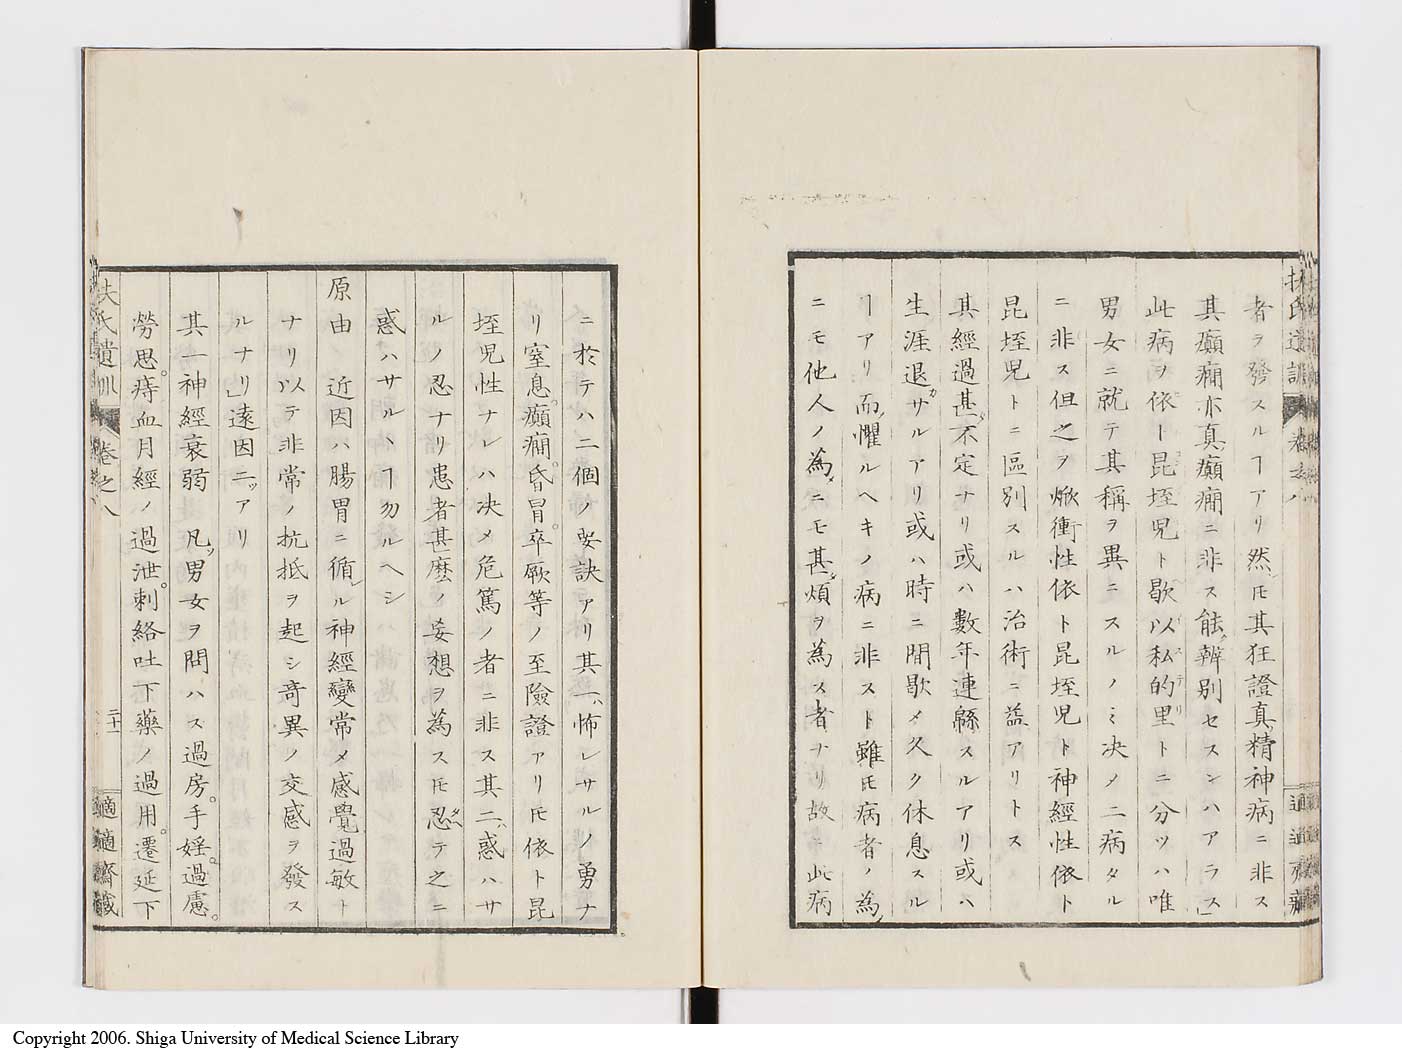 扶氏遺訓 卷之八 適適齋藏
者ヲ發スルヿアリ然レ𪜈其狂證真ノ精神病ニ非ス
其癲癇亦真ノ癲癇ニ非ス能ク辨別セスンハアラス」
此病ヲ依ト昆垤児ト歇以私的里トニ分ツハ唯
男女ニ就テ其稱ヲ異ニスルノミ决メ二病タル
ニ非ス但之ヲ焮衝性依ト昆垤児ト神經性依ト
昆垤児トニ區別スルハ治術ニ益アリトス
其經過甚タ不定ナリ或ハ數年連緜スルアリ或ハ
生涯退カサルアリ或ハ時ニ間歇メ久ク休息スル
ヿアリ而乄懼ルヘキノ病ニ非スト雖𪜈病者ノ為メ
ニモ他人ノ為メニモ甚タ煩ヲ為ス者ナリ故ニ此病
ニ於テハ二個ノ要訣アリ其一ハ怖レサルノ勇ナ
リ窒息。癲癇。昏冒。卒厥等ノ至險證アリ𪜈依ト昆
垤児性ナレハ决メ危篤ノ者ニ非ス其二ハ惑ハサ
ルノ忍ナリ患者甚麽ノ妄想ヲ為ス𪜈忍テ之ニ
惑ハサルヽヿ勿ルヘシ
原由 近因ハ腸胃ニ循ル神經變常メ感覺過敏ト
ナリ以テ非常ノ抗抵ヲ起シ奇異ノ交感ヲ發ス
ルナリ」遠因ニツアリ
其一神經衰弱 凡ソ男女ヲ問ハス過房。手婬。過慮。
勞思。痔血月經ノ過泄。刺絡吐下藥ノ過用。遷延下
扶氏遺訓 卷之八 二十一 適適齋藏
Copyright 2006. Shiga University of Medical Science Library